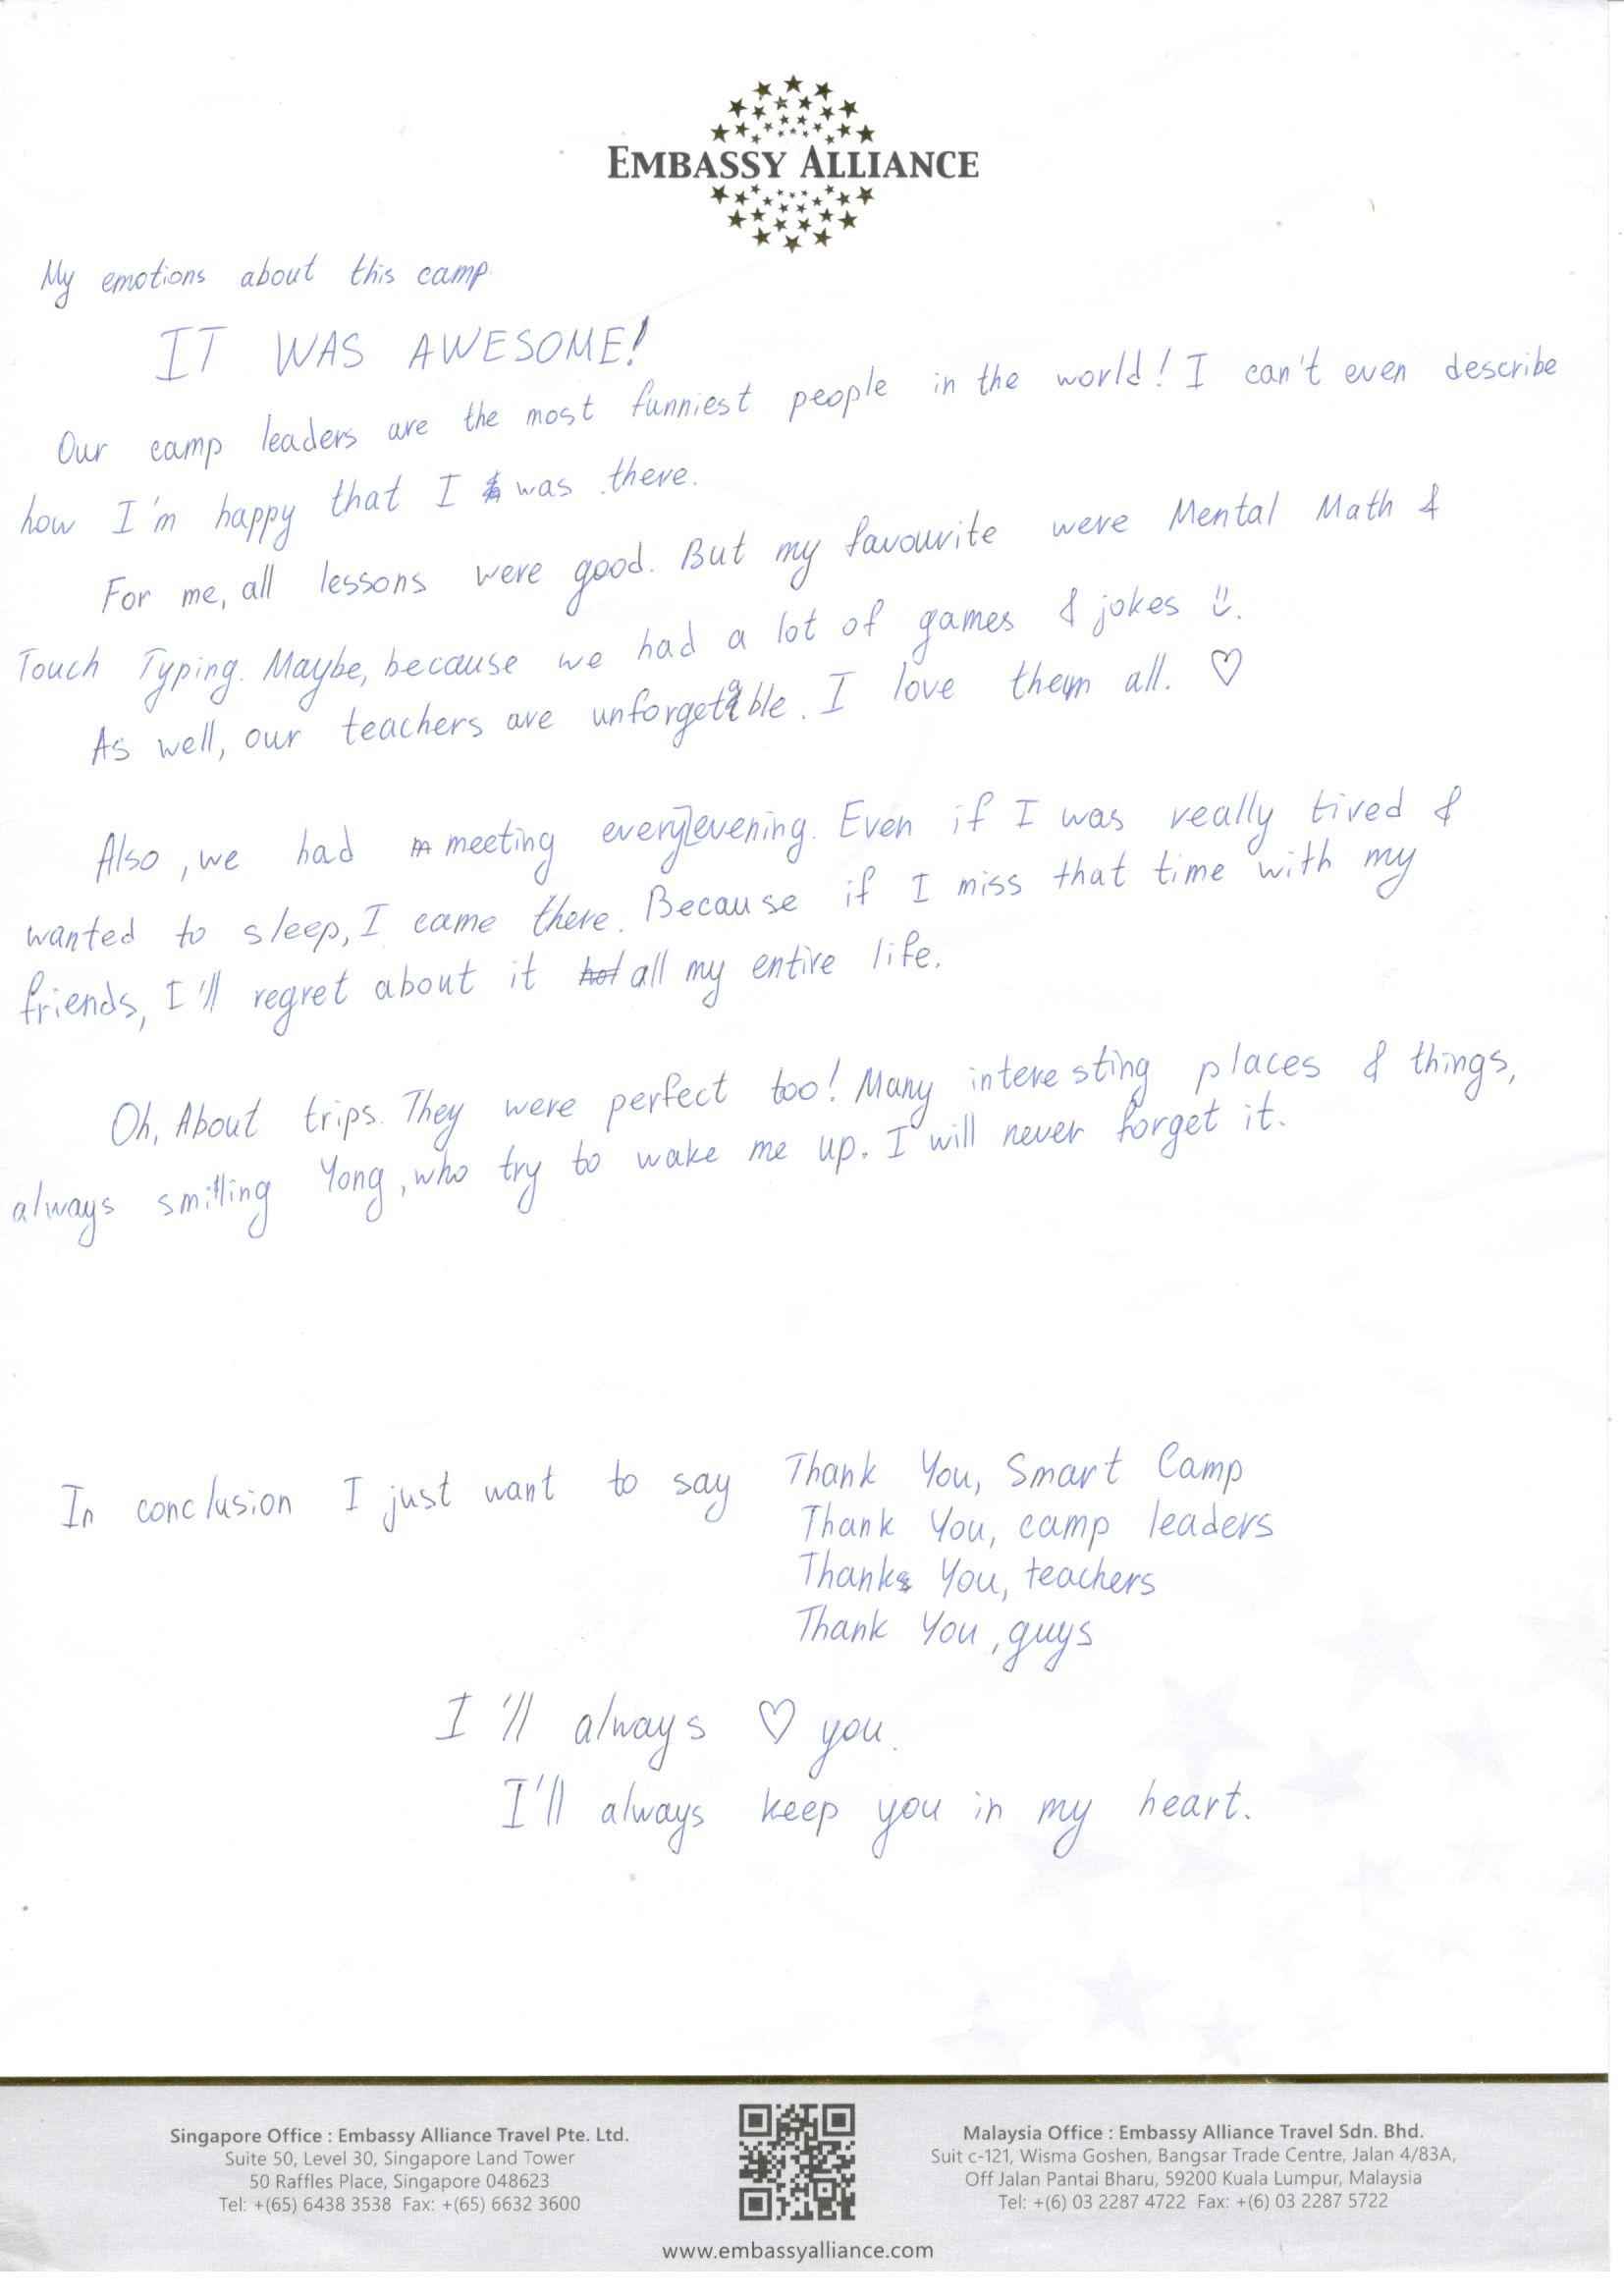 EMBASSY ALLIANCE
My emotions about this camp.
IT WAS AWESOME!
Our camp leaders are the most funniest people in the world! I can't even describe
how I'm happy that I was there.
For me, all lessons were good. But my favourite were Mental Math &
Touch Typing. Maybe, because we had a lot of games & jokes ☺.
As well, our teachers are unforgetable. I love them all. ♡
Also, we had meeting every evening. Even if I was really tired &
wanted to sleep, I came there. Because if I miss that time with my
friends, I'll regret about it all my entire life.
Oh, About trips. They were perfect too! Many interesting places & things,
always smiling Yong, who try to wake me up. I will never forget it.
In conclusion I just want to say Thank You, Smart Camp
Thank You, camp leaders
Thank You, teachers
Thank You, guys
I'll always ♡ you.
I'll always keep you in my heart.
Singapore Office : Embassy Alliance Travel Pte. Ltd.
Suite 50, Level 30, Singapore Land Tower
50 Raffles Place, Singapore 048623
Tel: +(65) 6438 3538 Fax: +(65) 6632 3600
Malaysia Office : Embassy Alliance Travel Sdn. Bhd.
Suit c-121, Wisma Goshen, Bangsar Trade Centre, Jalan 4/83A,
Off Jalan Pantai Bharu, 59200 Kuala Lumpur, Malaysia
Tel: +(6) 03 2287 4722 Fax: +(6) 03 2287 5722
www.embassyalliance.com